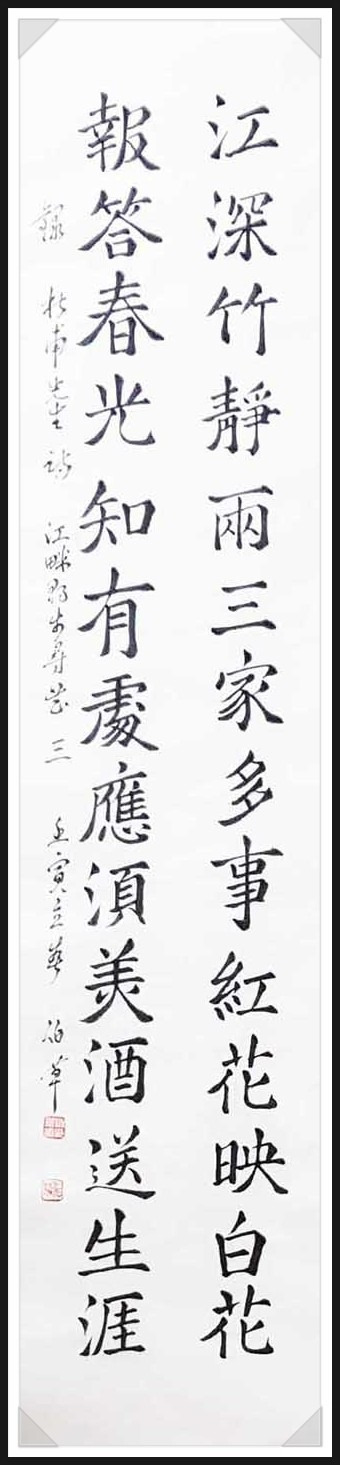 江深竹靜兩三家多事紅花映白花
報答春光知有處應須美酒送生涯
錄 杜甫先生詩 江畔獨步尋花 三 壬寅立